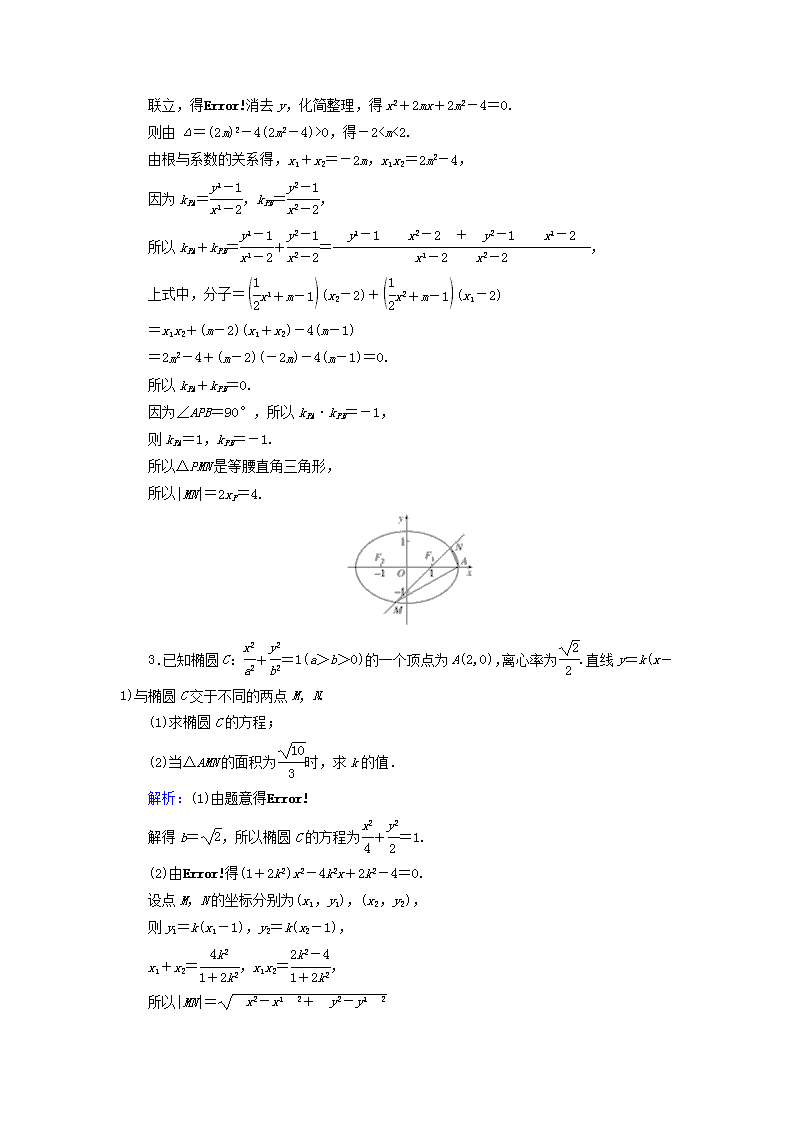 联立，得Error!消去 y，化简整理，得 x²＋2mx＋2m²－4＝0.
则由 Δ＝(2m)²－4(2m²－4)>0，得－2<m<2.
由根与系数的关系得，x₁＋x₂＝－2m，x₁x₂＝2m²－4，
因为 k_PA＝\frac{y1－1}{x1－2}，k_PB＝\frac{y2－1}{x2－2}，
所以 k_PA＋k_PB＝\frac{y1－1}{x1－2}＋\frac{y2－1}{x2－2}＝\frac{y1－1　x2－2　＋　y2－1　x1－2}{x1－2　x2－2}，
上式中，分子＝(\frac{1}{2}x1＋m－1)(x₂－2)＋(\frac{1}{2}x2＋m－1)(x₁－2)
＝x₁x₂＋(m－2)(x₁＋x₂)－4(m－1)
＝2m²－4＋(m－2)(－2m)－4(m－1)＝0.
所以 k_PA＋k_PB＝0.
因为∠APB＝90°，所以 k_PA·k_PB＝－1，
则 k_PA＝1，k_PB＝－1.
所以△PMN 是等腰直角三角形，
所以|MN|＝2x_P＝4.
y
1
N
F₂
F₁
A
－1
O
1
x
－1
M
3.已知椭圆 C：\frac{x2}{a2}＋\frac{y2}{b2}＝1(a＞b＞0)的一个顶点为 A(2,0)，离心率为\frac{\sqrt{2}}{2}.直线 y＝k(x－
1)与椭圆 C 交于不同的两点 M，N.
(1)求椭圆 C 的方程；
(2)当△AMN 的面积为\frac{\sqrt{10}}{3}时，求 k 的值.
解析：(1)由题意得Error!
解得 b＝\sqrt{2}，所以椭圆 C 的方程为\frac{x2}{4}＋\frac{y2}{2}＝1.
(2)由Error!得(1＋2k²)x²－4k²x＋2k²－4＝0.
设点 M，N 的坐标分别为(x₁，y₁)，(x₂，y₂)，
则 y₁＝k(x₁－1)，y₂＝k(x₂－1)，
x₁＋x₂＝\frac{4k2}{1＋2k2}，x₁x₂＝\frac{2k2－4}{1＋2k2}，
所以|MN|＝\sqrt{x2－x1　2＋　y2－y1　2}